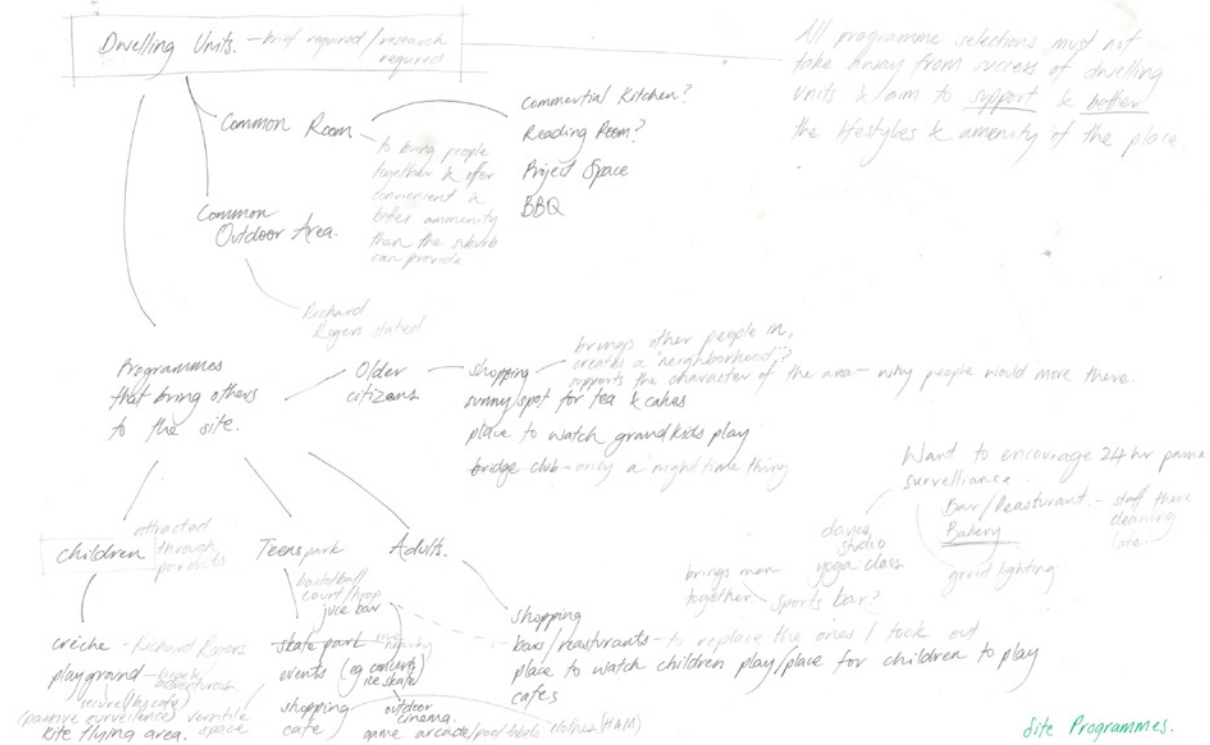 Dwelling Units. - brief required/research
required
All programme selections must not
take away from success of dwelling
units & aim to support & better
the lifestyles & amenity of the place.
Common Room
to bring people
together & offer
convienient &
better ammenity
than the suburb
can provide
Commertial Kitchen?
Reading Room?
Project Space
BBQ
Common
Outdoor Area.
Richard
Rogers stated
Programmes
that bring others
to the site.
Older
citizans
shopping
brings other people in,
creates a "neighborhood"?
supports the character of the area - why people would move there.
sunny spot for tea & cakes
place to watch grandkids play
bridge club - only a night time thing
Want to encourage 24 hr
survelliance.
Bar/Reasturant. - staff there
cleaning
late.
Bakery
great lighting
dance
studio
yoga class
brings men
together.
sports bar?
children
attracted
through
parents.
Teens
park
basketball
court/hoop
juce bar
Adults.
créche - Richard Rogers
playground -
adventurous.
secure (by cafe)
(passive surveilence)
kite flying area.
versitile
space
skate park
one
nearby
events (eg concerts)
ice skate
shopping
cafe
outdoor
cinema.
game arcade/pool tables.
clothes (H&M)
shopping
bars/reasturants - to replace the ones I took out
place to watch children play/place for children to play
cafes
Site Programmes.